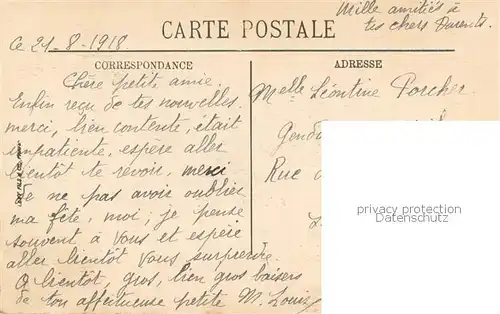 Mille amitiés à
tes chers Parents.
CARTE POSTALE
Ce 21-8-1918
CORRESPONDANCE
ADRESSE
Chère petite amie.
Enfin reçu de tes nouvelles.
merci, bien contente, était
impatiente, espère aller
bientôt te revoir, merci
de ne pas avoir oublier
ma fête, moi, je pense
souvent à vous et espère
aller bientôt vous surprendre.
A bientôt, gros, bien gros baisers
de ton affectueuse petite M. Louis
Melle Léontine Porcher
Gend
Rue
privacy protection
privacy protection